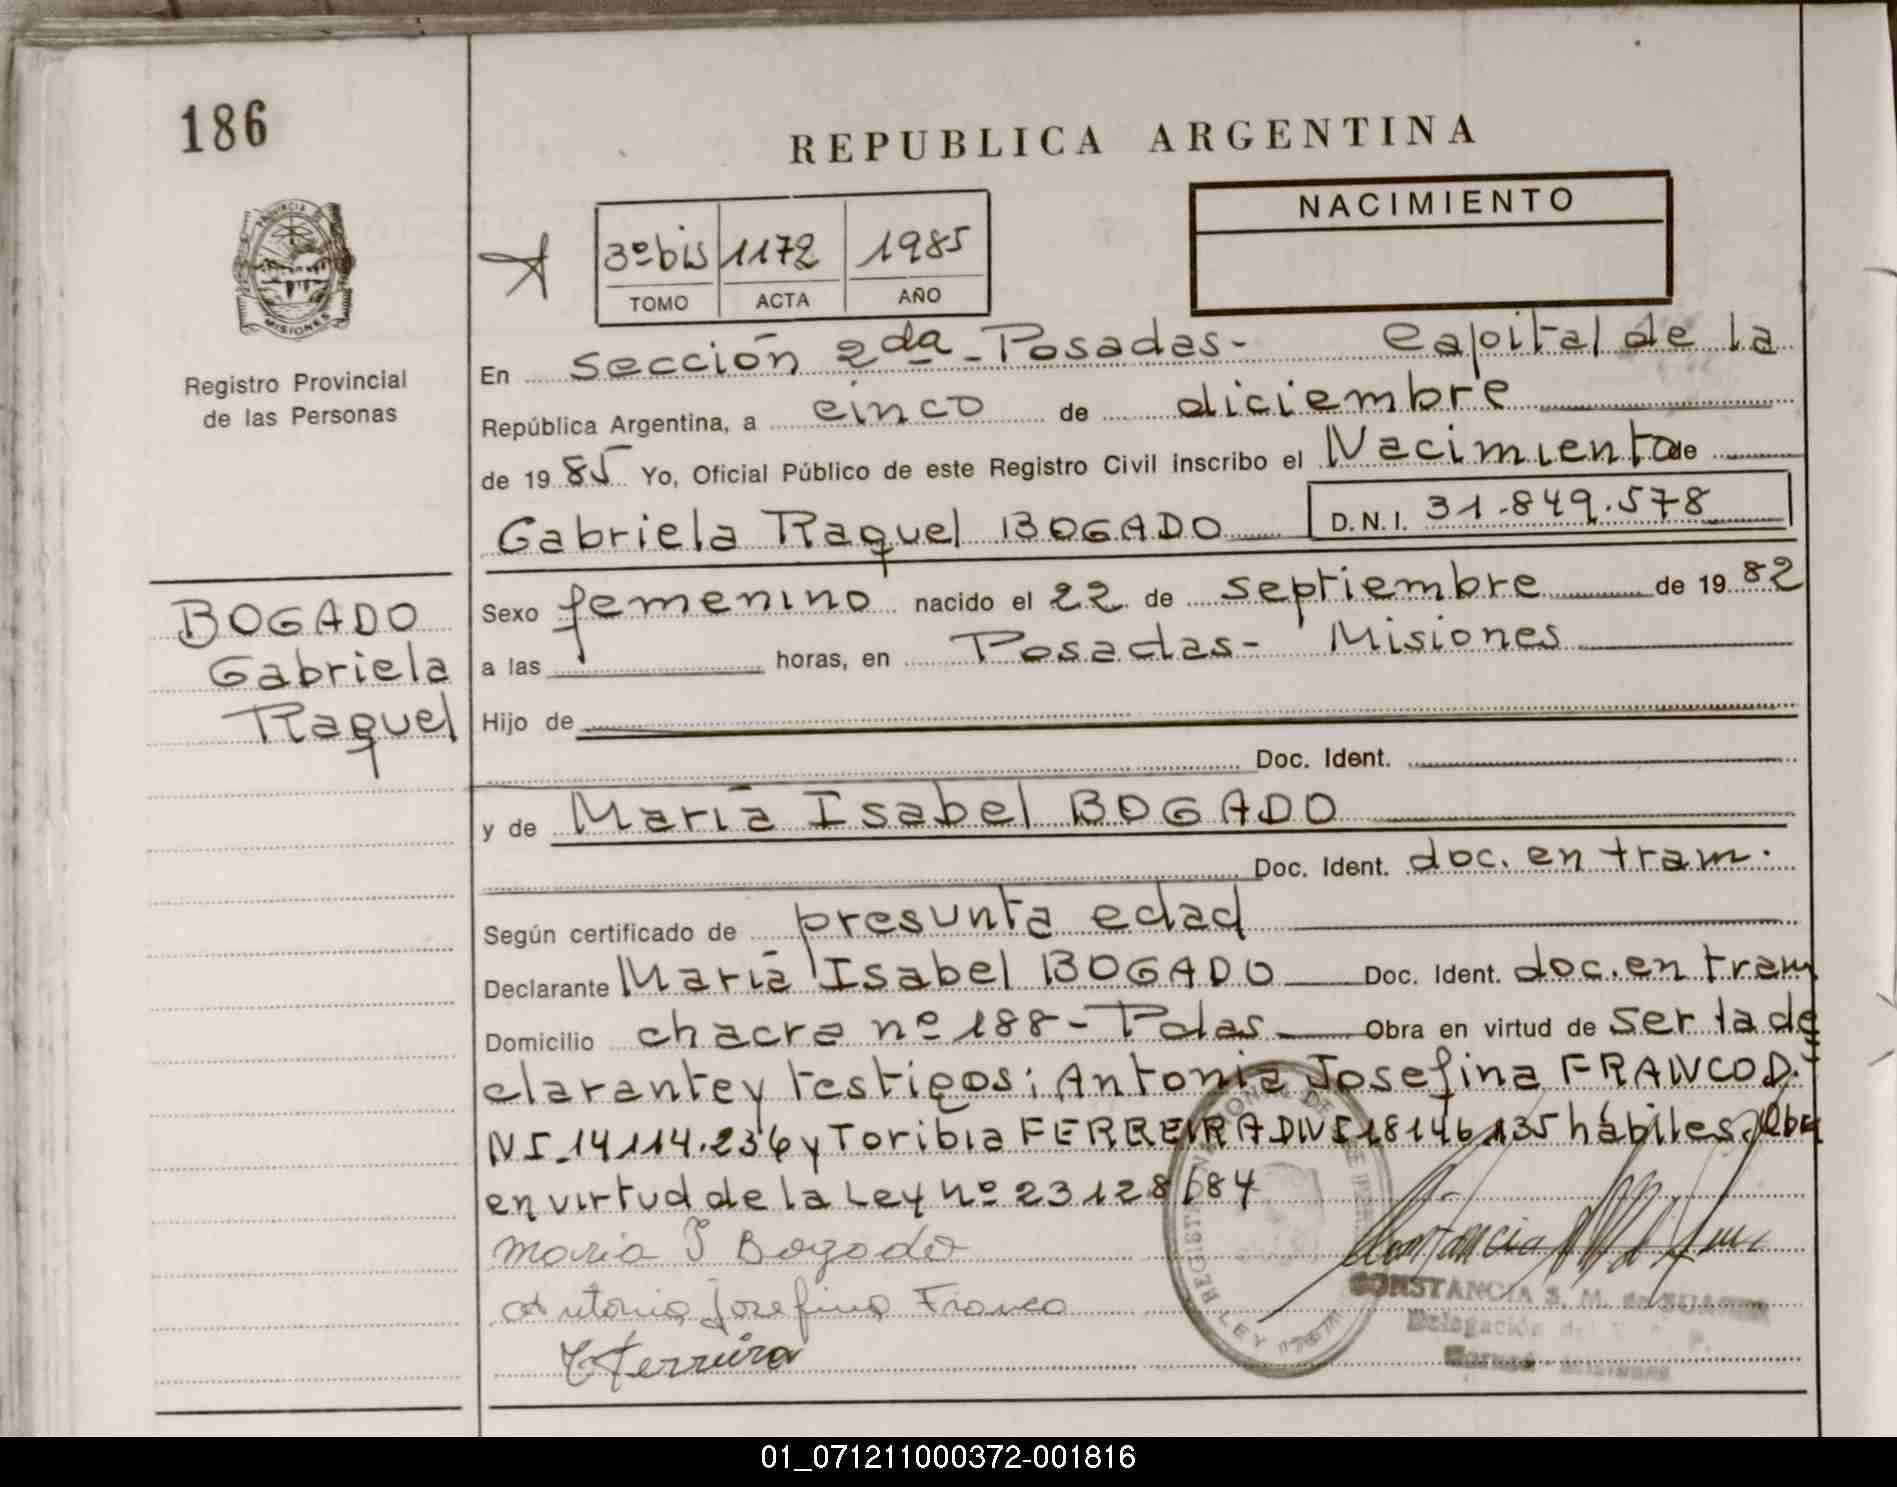 186
REPUBLICA ARGENTINA
NACIMIENTO
3º bis 1172 1985
TOMO ACTA AÑO
PROVINCIA DE
MISIONES
Registro Provincial
de las Personas
En sección 2da - Posadas - Capital de la
República Argentina, a cinco de diciembre
de 1985 Yo, Oficial Público de este Registro Civil inscribo el Nacimiento de
Gabriela Raquel BOGADO D.N.I. 31.849.578
BOGADO
Gabriela
Raquel
Sexo femenino nacido el 22 de septiembre de 1982
a las horas, en Posadas - Misiones
Hijo de
Doc. Ident.
y de María Isabel BOGADO
Doc. Ident. doc. en tram.
Según certificado de presunta edad
Declarante María Isabel BOGADO Doc. Ident. doc. en tram
Domicilio chacra nº 188 - Pdas. Obra en virtud de ser la de
clarante y testigos: Antonia Josefina FRANCO D.
NI. 14114.236 y Toribia FERREIRA DNI 18146135 hábiles. Obra
en virtud de la Ley Nº 23128/84
Maria I Bogado
Antonia Josefina Franco
T Ferreira
CONSTANCIA S. M. de SUAREZ
Delegación del
01_071211000372-001816